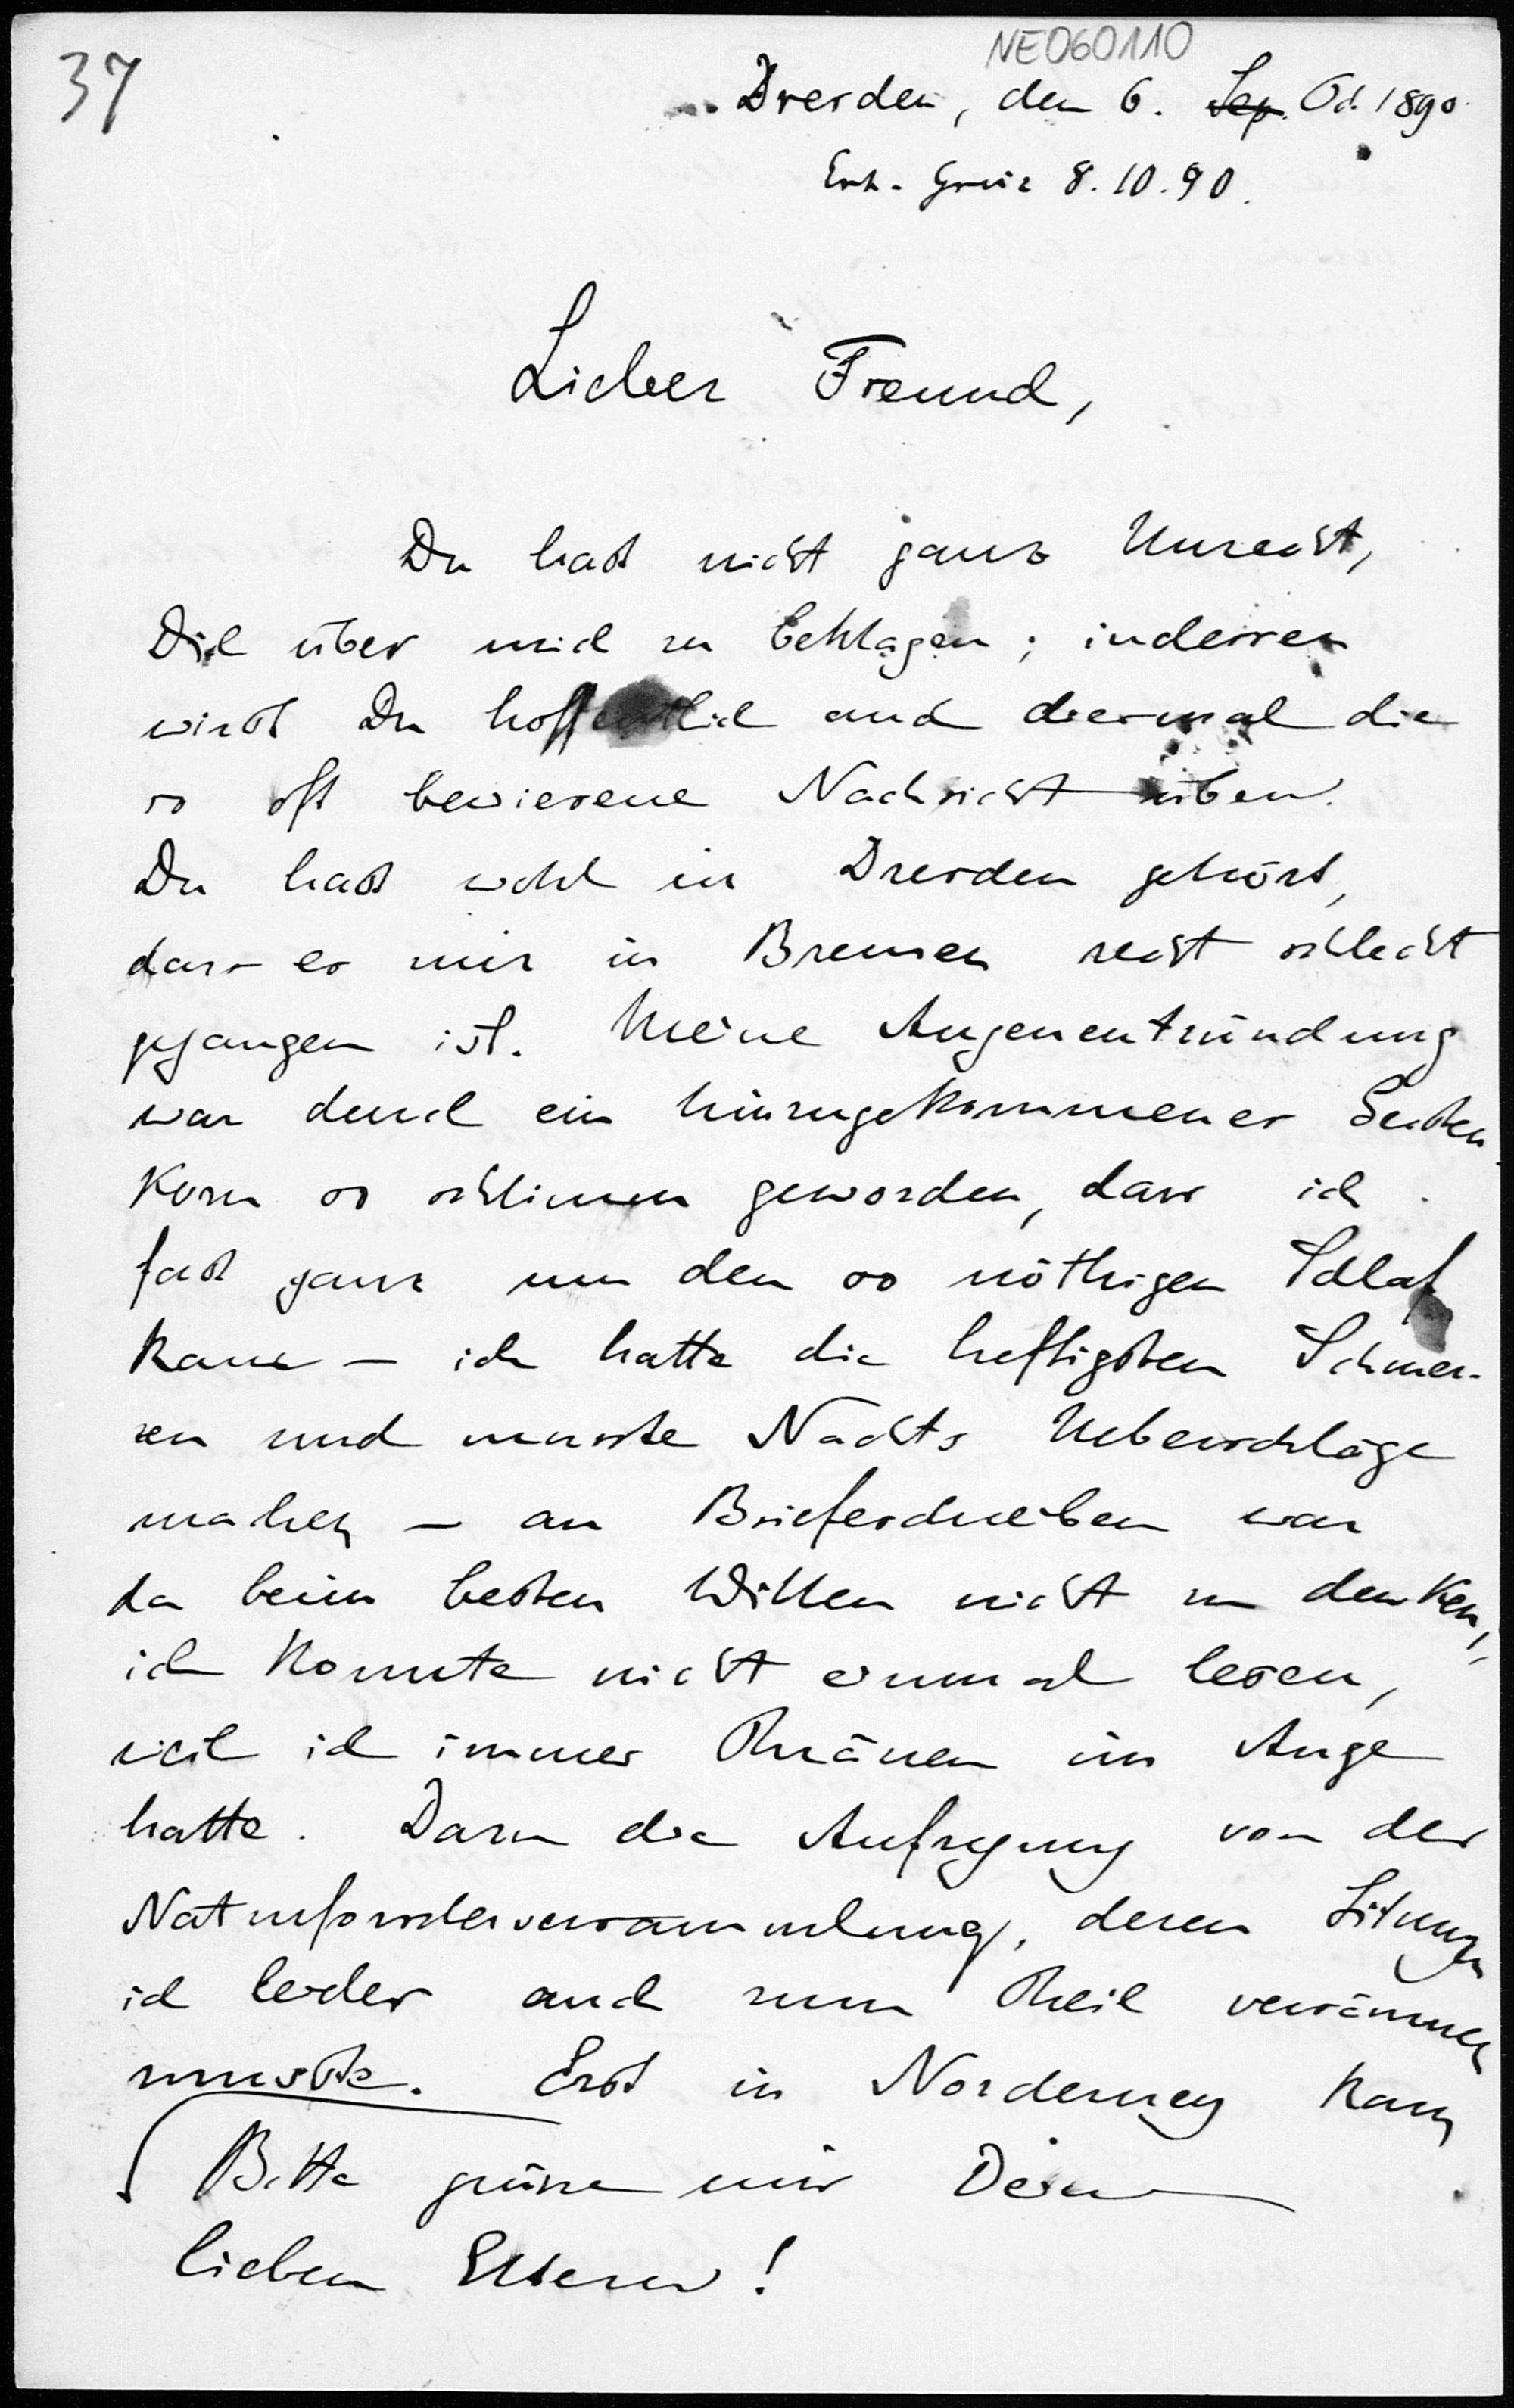 37
NE060110
Dresden, den 6. Sep. Oct. 1890
Erh. Graz 8.10.90.
Lieber Freund,
Du hast nicht ganz Unrecht,
Dich über mich zu beklagen; indessen
wirst Du hoffentlich auch diesmal die
so oft bewiesene Nachsicht üben.
Du hast wohl in Dresden gehört,
dass es mir in Bremen recht schlecht
gegangen ist. Meine Augenentzündung
war durch ein hinzugekommenes
korn so schlimm geworden, dass ich
fast ganz um den so nöthigen Schlaf
kam – ich hatte die heftigsten Schmer-
zen und musste Nachts Ueberschläge
machen – an Briefeschreiben war
da beim besten Willen nicht zu denken,
ich konnte nicht einmal lesen,
weil ich immer Thränen im Auge
hatte. Dazu die Aufregung von der
Naturforscherversammlung, deren Sitzungen
ich leider auch zum Theil versäumen
musste. Erst in Norderney kam
Bitte grüsse mir Deine
lieben Eltern!